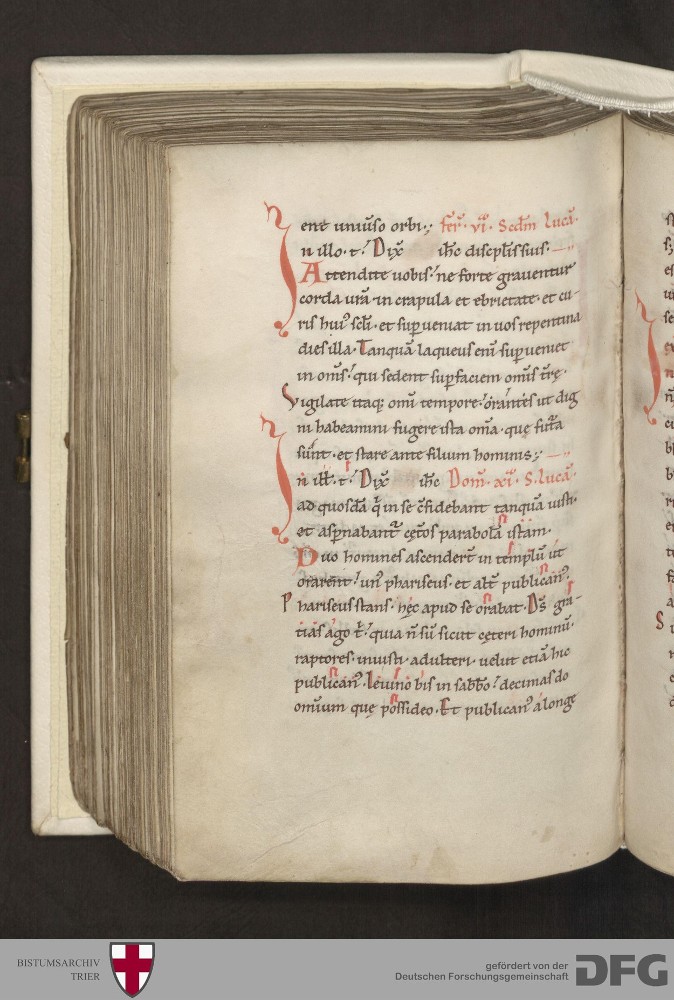 ene uniuso orbi; fer. vi. Scdm lucā.
n illo. t. Dix ihc discplis suis.
Attendite uobis. ne forte grauentur
corda urā in crapula et ebrietate. et cu
ris hui' scli. et supueniat in uos repentina
dies illa. Tanquā laqueus eni supueniet
in oms. qui sedent sup faciem omis trę.
Vigilate itaq; omi tempore. orantes ut dig
ni habeamini fugere ista oma. quę futa
sunt. et stare ante filium hominis;
In ill. t. Dix ihc Dom. xi. S. lucā.
ad quosdā q in se cfidebant tanquā iusti.
et aspnabant cętos parabolā istam.
Duo homines ascendert in templū ut
orarent. un' phariseus. et alt publican'.
Phariseus stans. hęc apud se orabat. Ds gra-
tias ago t. quia n sū sicut cęteri hominū.
raptores. iniusti. adulteri. uelut etiā hic
publican'. Ieiuno bis in sabbo. decimas do
omium quę possideo. Et publican' a longe
BISTUMSARCHIV
TRIER
gefördert von der
Deutschen Forschungsgemeinschaft
DFG